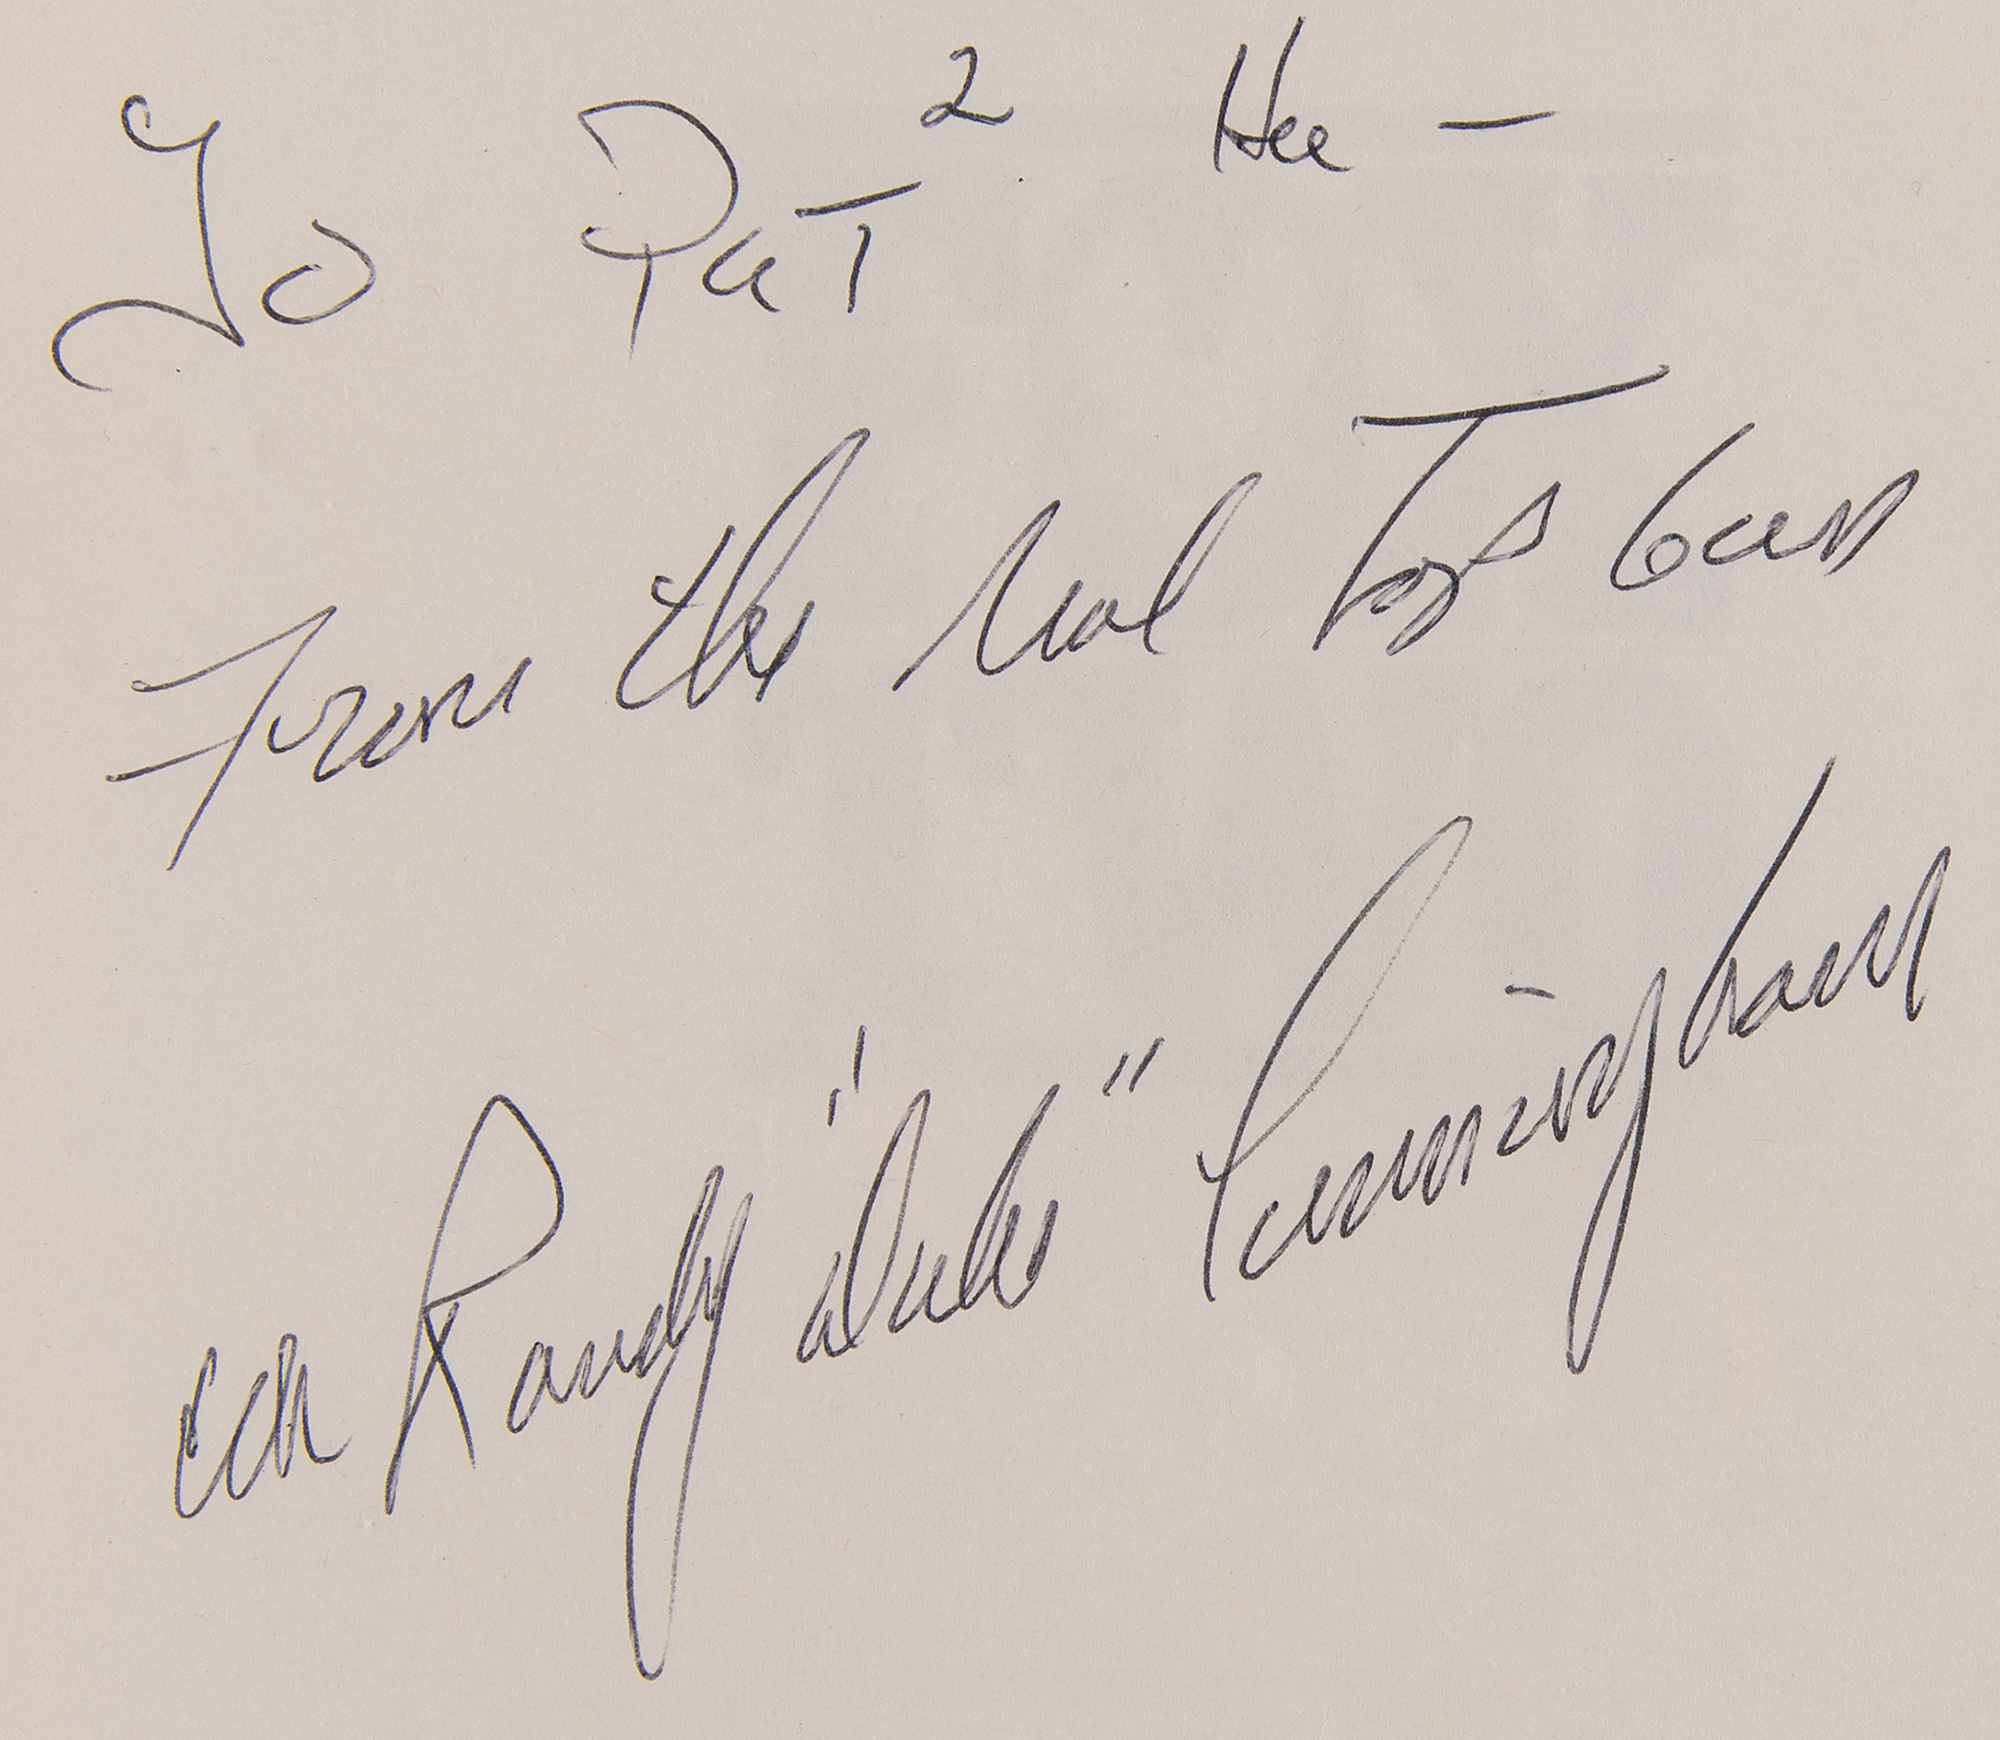 To Pat² Hee —
From the real Top Gun
CDR Randy "Duke" Cunningham